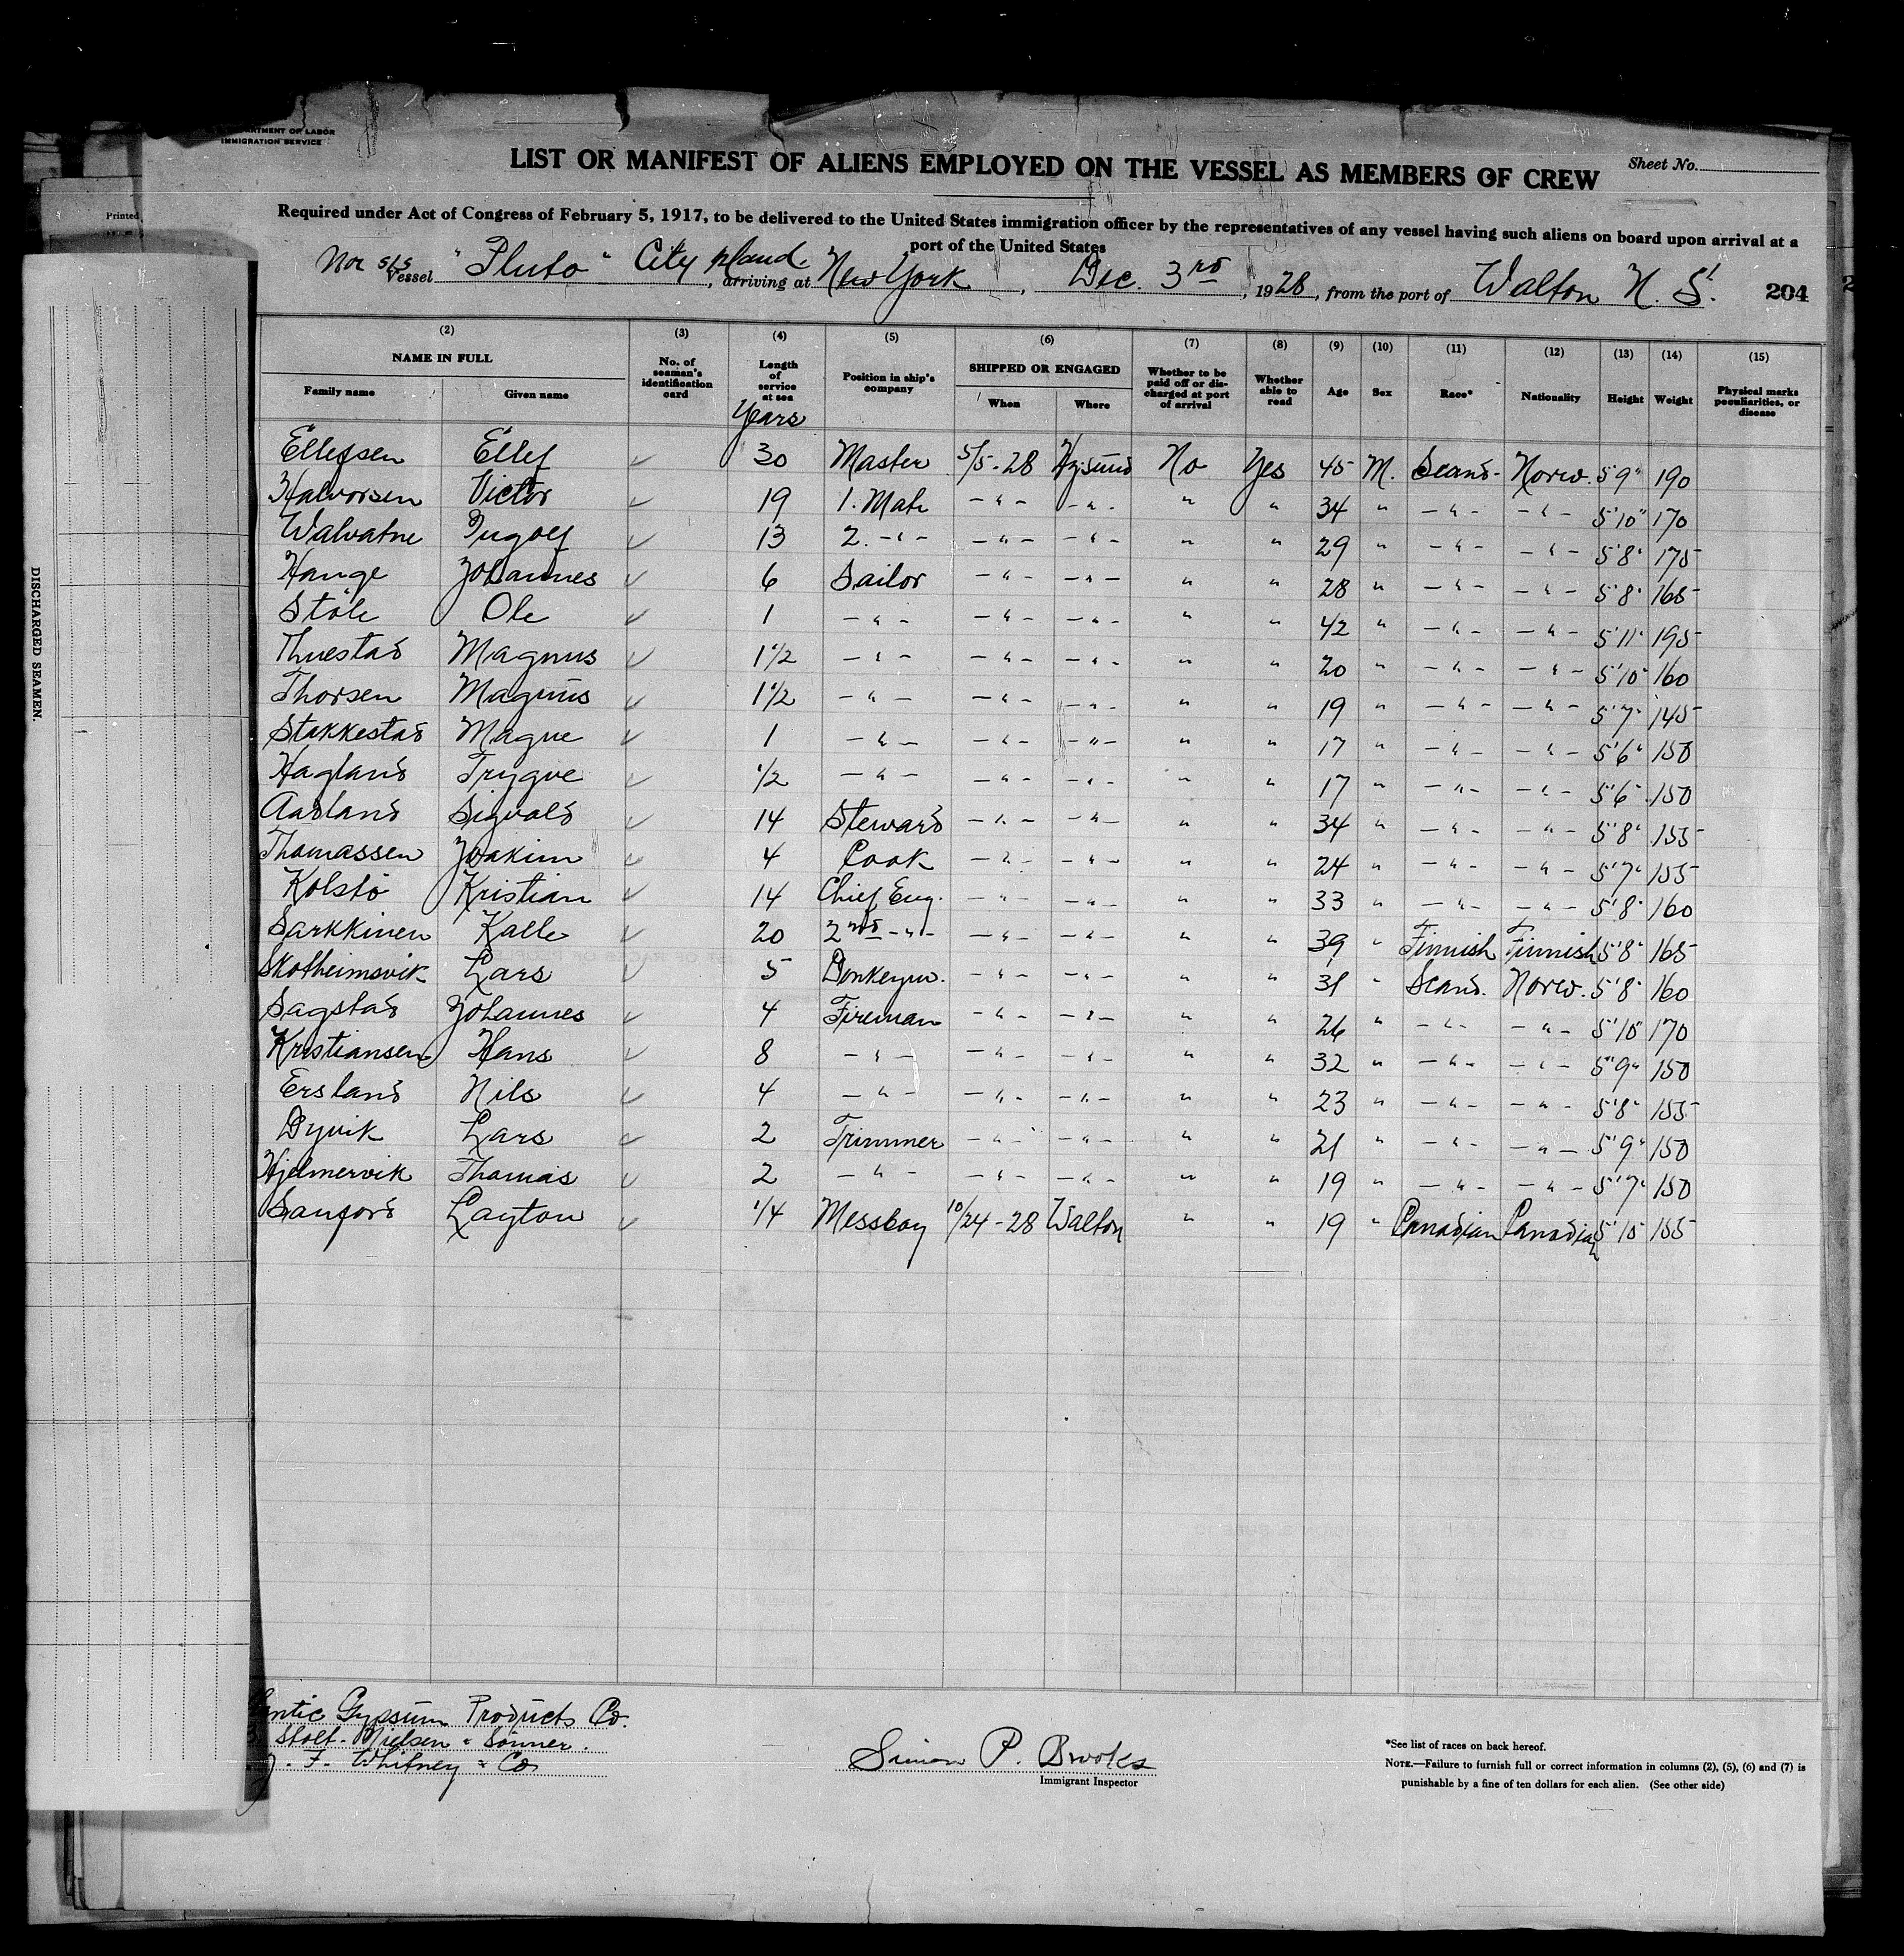 DEPARTMENT OF LABOR
IMMIGRATION SERVICE
Printed
LIST OR MANIFEST OF ALIENS EMPLOYED ON THE VESSEL AS MEMBERS OF CREW
Sheet No.
Required under Act of Congress of February 5, 1917, to be delivered to the United States immigration officer by the representatives of any vessel having such aliens on board upon arrival at a
port of the United States
Nor s/s Vessel "Pluto" City Island, arriving at New York, Dec. 3rd, 1928, from the port of Walton N. S. 204
(2) (3) (4) (5) (6) (7) (8) (9) (10) (11) (12) (13) (14) (15)
NAME IN FULL
Family name Given name
No. of seaman's identification card
Length of service at sea
Years
Position in ship's company
SHIPPED OR ENGAGED
When Where
Whether to be paid off or discharged at port of arrival
Whether able to read
Age Sex Race* Nationality Height Weight
Physical marks peculiarities, or disease
Ellefsen Ellef ✓ 30 Master 5/5-28 No Yes 45 M. Scand. Norw. 5'9" 190
Halvorsen Victor ✓ 19 1. Mate -"- -"- " " 34 " -"- -"- 5'10" 170
Walvatne Ingolf ✓ 13 2. -"- -"- -"- " " 29 " -"- -"- 5'8" 175
Hauge Johannes ✓ 6 Sailor -"- -"- " " 28 " -"- -"- 5'8" 165
Stöle Ole ✓ 1 -"- -"- -"- " " 42 " -"- -"- 5'11" 195
Thuestad Magnus ✓ 1 1/2 -"- -"- -"- " " 20 " -"- -"- 5'10" 160
Thorsen Magnus ✓ 1 1/2 -"- -"- -"- " " 19 " -"- -"- 5'7" 145
Stakkestad Magne ✓ 1 -"- -"- -"- " " 17 " -"- -"- 5'6" 150
Hagland Trygve ✓ 1/2 -"- -"- -"- " " 17 " -"- -"- 5'6" 150
Aasland Sigvald ✓ 14 Steward -"- -"- " " 34 " -"- -"- 5'8" 155
Thomassen Joakim ✓ 4 Cook -"- -"- " " 24 " -"- -"- 5'7" 155
Kolstö Kristian ✓ 14 Chief Eng. -"- -"- " " 33 " -"- -"- 5'8" 160
Sarkkinen Kalle ✓ 20 2nd -"- -"- -"- " " 39 " Finnish Finnish 5'8" 165
Skotheimsvik Lars ✓ 5 Donkeym. -"- -"- " " 31 " Scand. Norw. 5'8" 160
Sagstad Johannes ✓ 4 Fireman -"- -"- " " 26 " -"- -"- 5'10" 170
Kristiansen Hans ✓ 8 -"- -"- -"- " " 32 " -"- -"- 5'9" 150
Ersland Nils ✓ 4 -"- -"- -"- " " 23 " -"- -"- 5'8" 155
Dyvik Lars ✓ 2 Trimmer -"- -"- " " 21 " -"- -"- 5'9" 150
Hjelmervik Thomas ✓ 2 -"- -"- -"- " " 19 " -"- -"- 5'7" 150
Sanford Layton ✓ 1/4 Messboy 10/24-28 Walton " " 19 " Canadian Canadian 5'10 155
DISCHARGED SEAMEN.
antic Gypsum Products Co.
Stolt-Nielsen & Sonner.
J. F. Whitney & Co
Simon P. Brooks
Immigrant Inspector
*See list of races on back hereof.
NOTE.—Failure to furnish full or correct information in columns (2), (5), (6) and (7) is
punishable by a fine of ten dollars for each alien. (See other side)